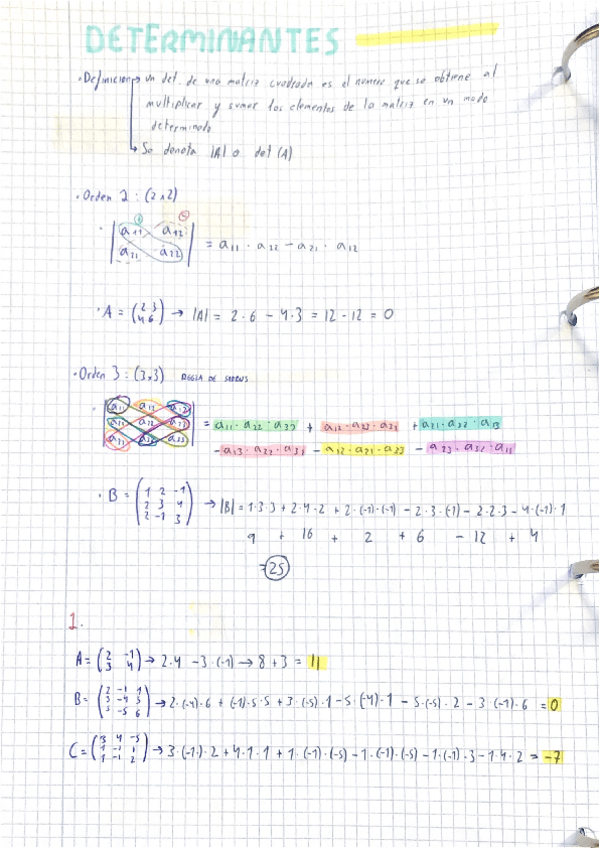 DETERMINANTES
· Definicion → Un det. de una matriz cuadrada es el numero que se obtiene al
multiplicar y sumar los elementos de la matriz en un modo
determinado
↳ Se denota |A| o det (A)
· Orden 2 : (2x2)
+ −
· |a11 a12|
|a21 a22| = a11 · a22 − a21 · a12
· A = (2 3
4 6) → |A| = 2·6 − 4·3 = 12 - 12 = 0
· Orden 3 : (3x3) REGLA DE SARRUS
= a11 · a22 · a33 +
+
−
−
−
· B = (1 2 -1
2 3 4
2 -1 3) → |B| = 1·3·3 + 2·4·2 + 2·(-1)·(-1) − 2·3·(-1) − 2·2·3 − 4·(-1)·1
9 + 16 + 2 + 6 − 12 + 4
=25
1.
A = (2 -1
3 4) → 2·4 − 3·(-1) → 8 + 3 = 11
B = (2 -1 1
3 -4 5
5 -5 6) → 2·(-4)·6 + (-1)·5·5 + 3·(-5)·1 − 5·(-4)·1 − 5·(-5)·2 − 3·(-1)·6 = 0
C = (3 4 -5
1 -1 1
1 -1 2) → 3·(-1)·2 + 4·1·1 + 1·(-1)·(-5) − 1·(-1)·(-5) − 1·(-1)·3 − 1·4·2 = -7